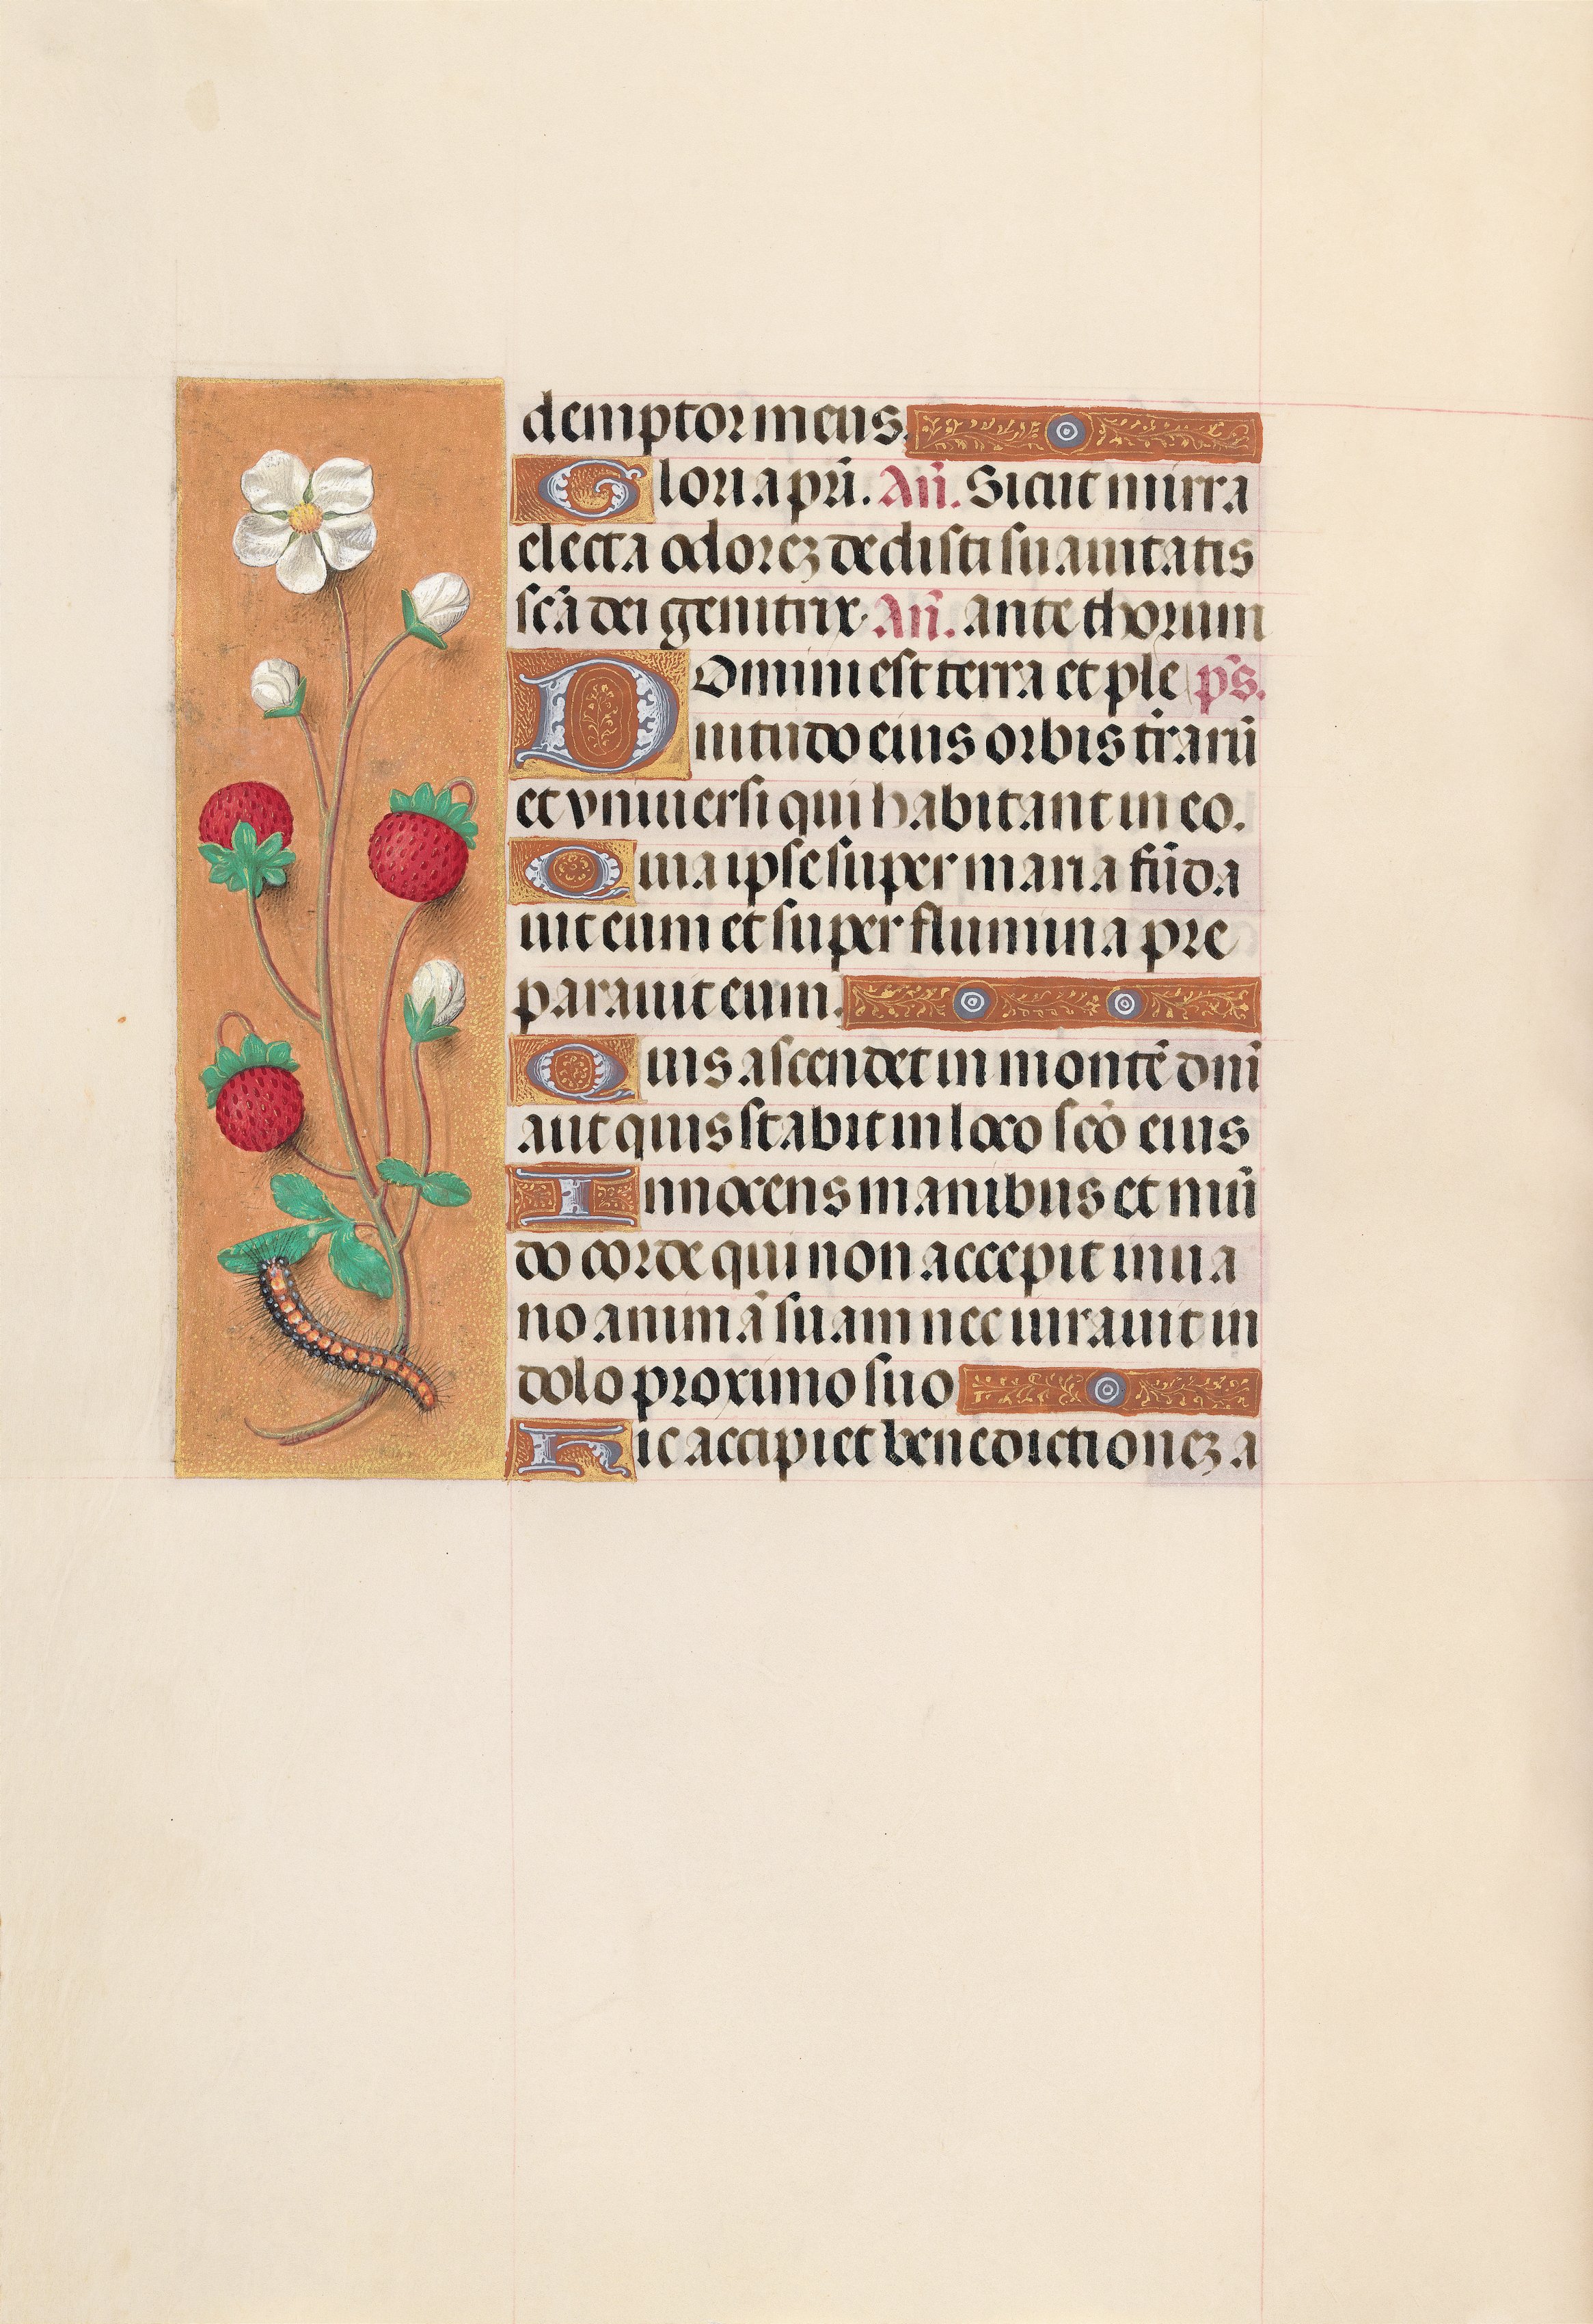 demptor meus.
Gloria pr̄i. Añ. Sicut mirra
electa odorēꝫ dedisti suauitatis
sc̄a dei genitrix. Añ. ante thorum
Domini est terra et ple ps.
nitudo eius orbis t̄rarū
et vniuersi qui habitant in eo.
Quia ipse super maria fūda
uit eum et super flumina pre
parauit eum.
Quis ascendet in montē dn̄i
aut quis stabit in loco sc̄o eius
Innocens manibus et mū
do corde qui non accepit in ua
no animā suam nec iurauit in
dolo proximo suo
Hic accipiet benedictioneꝫ a